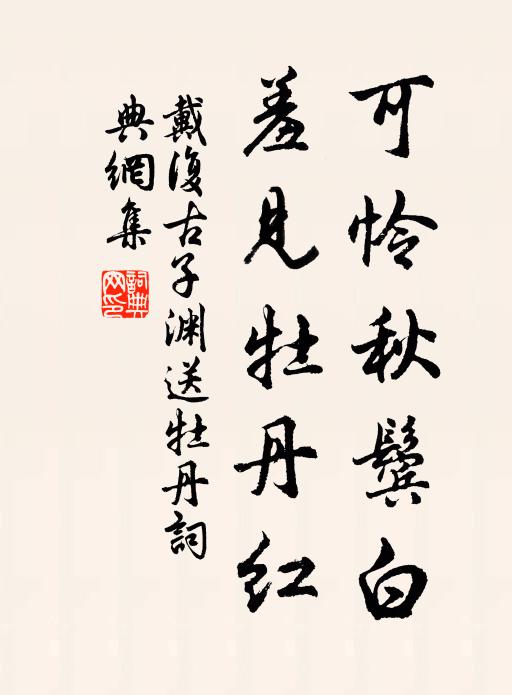 可怜秋鬓白
羞见牡丹红
戴復古子渊送牡丹詞
典網集
詞典網印